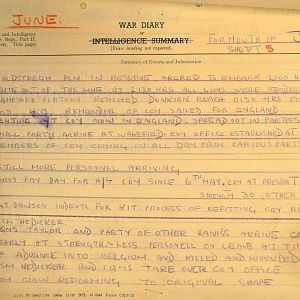 JUNE.
WAR DIARY
and Intelligence
S. Regs., Part II.
Title pages
OR
INTELLIGENCE SUMMARY.
(Erase heading not required).
FOR MONTH OF J
SHEET 5
Summary of Events and Information
OLDSTREAM PLN IN RESERVE ORDERED TO EMBARK 2100 H
CAME OUT OF THE LINE AT 2130 HRS ALL GUNS WERE RENDER
HAMPSHIRE PLATOON REACHED DUNKIRK BEACH 0130 HRS
REMAINDER OF COY SAILED FOR ENGLAND
A/T COY NOW IN ENGLAND. SPREAD OUT IN PARTIES
SMALL PARTY ARRIVE AT WAKEFIELD. COY OFFICE ESTABLISHED
MEMBERS OF COY COMING IN ALL DAY FROM VARIOUS PART
STILL MORE PERSONNEL ARRIVING
FIRST PAY DAY FOR A/T COY SINCE 6TH MAY. COY AT PRESENT
STRENGTH 30 OTHER
SGT DAWSON INDENTS FOR KIT. PROCESS OF REFITTING COY
SM HEDICKER.
QMS TAYLOR AND PARTY OF OTHER RANKS ARRIVE. CO
NEARLY AT STRENGTH - LESS PERSONELL ON LEAVE AT TIM
OF ADVANCE INTO BELGIUM AND KILLED AND WOUNDED
SM HEDICKER AND CQMS TAKE OVER COY OFFICE
NOW REFORMING TO ORIGINAL SHAPE